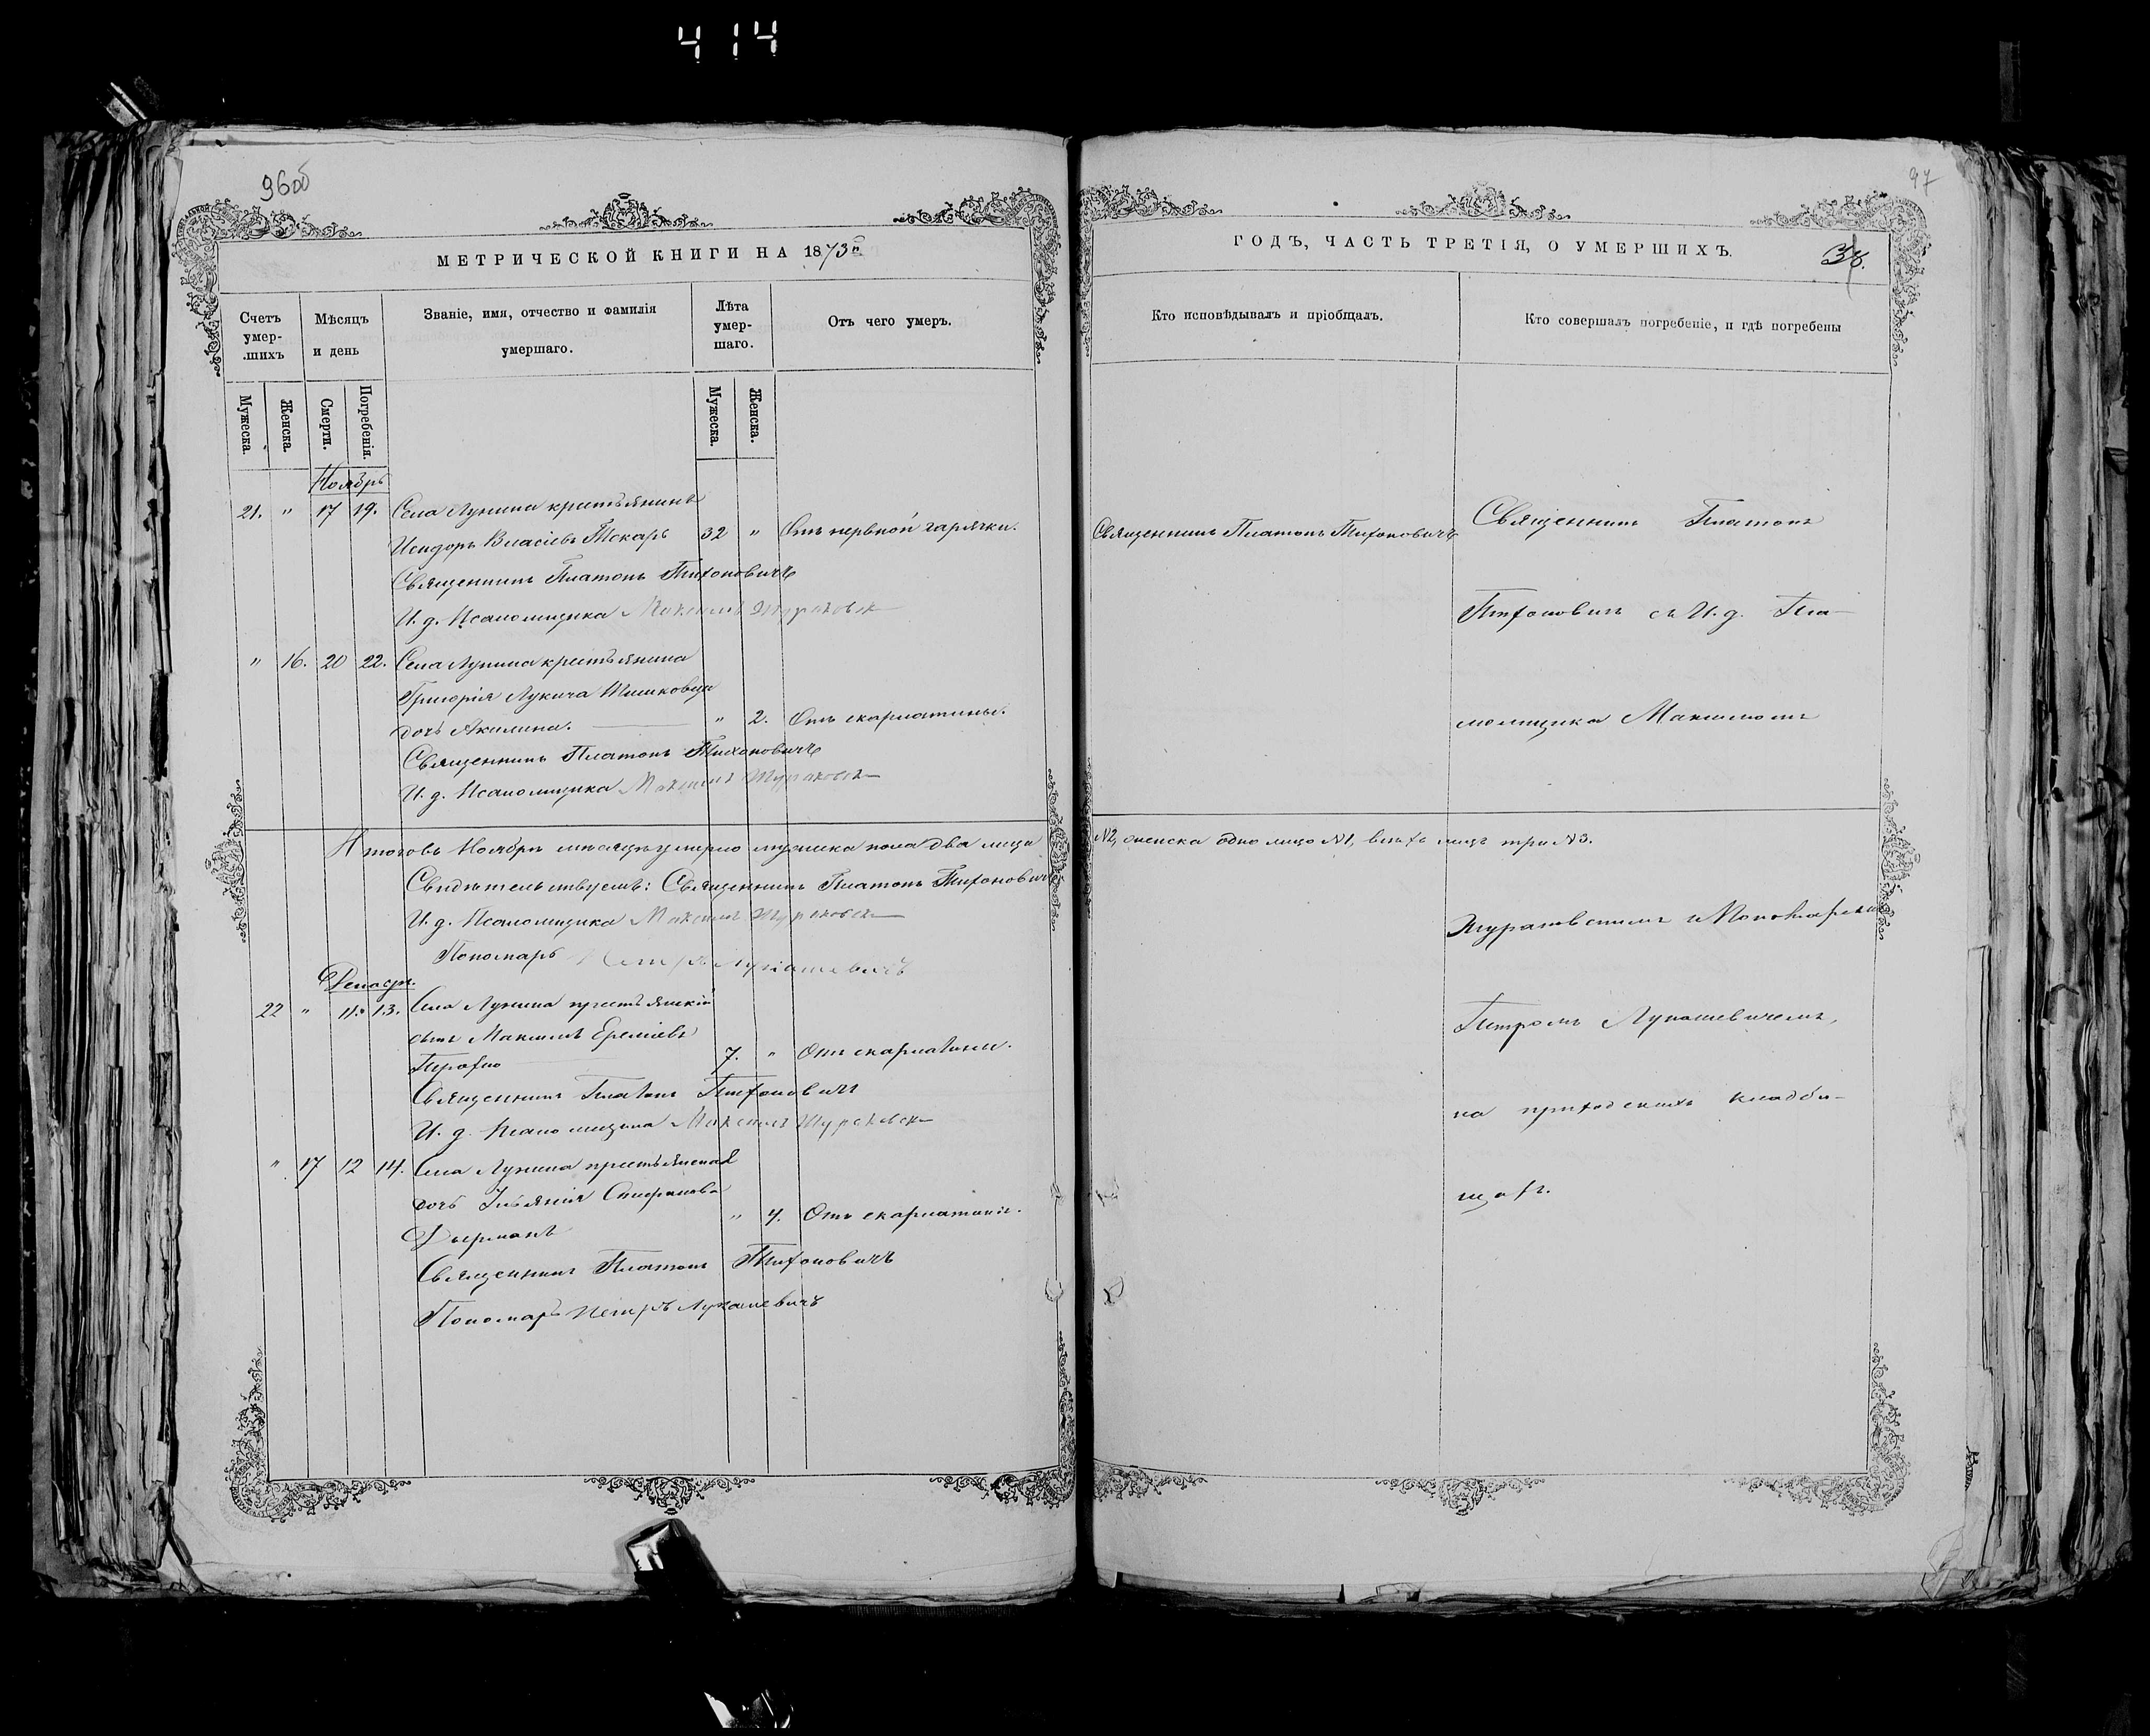 414
96об
МЕТРИЧЕСКОЙ КНИГИ НА 1873й
Счетъ умер-
шихъ
Мѣсяцъ
и день
Званіе, имя, отчество и фамилія
умершаго.
Лѣта
умер-
шаго.
Отъ чего умеръ.
Мужеска.
Женска.
Смерти.
Погребенія.
Мужеска.
Женска.
Ноябрь
21. " 17 19. Села Лунина крестьянинъ
Исидоръ Власіевъ Токарь 32 " Отъ нервной гарячки.
Священникъ Платонъ Тихоновичъ
И. д. Псаломщика Максимъ
" 16. 20 22. Села Лунина крестьянина
Григорія Лукича Шишковца
дочь Акилина. " 2. Отъ скарлатины.
Священникъ Платонъ Тихоновичъ
И. д. Псаломщика Максимъ
Итого въ Ноябрѣ мѣсяцѣ умерло мужеска пола два лица
Свидѣтельствуемъ: Священникъ Платонъ Тихоновичъ
И. д. Псаломщика Максимъ
Пономарь Петръ Лукашевичъ
Декабрь.
22 " 11. 13. Села Лунина крестьянскій
сынъ Максимъ Ереміевъ
7. " Отъ скарлатины.
Священникъ Платонъ Тихоновичъ
И. д. Псаломщика Максимъ
" 17 12 14. Села Лунина крестьянская
дочь Стефанова
" 4. Отъ скарлатины.
Священникъ Платонъ Тихоновичъ
Пономарь Петръ Лукашевичъ
97
ГОДЪ, ЧАСТЬ ТРЕТІЯ, О УМЕРШИХЪ.
Кто исповѣдывалъ и пріобщалъ.
Кто совершалъ погребеніе, и гдѣ погребены
Священникъ Платонъ Тихоновичъ
Священникъ Платонъ
Тихоновичъ съ И. д. Пса-
ломщика Максимомъ
№2, женска одно лицо №1, всѣхъ лицъ три №3.
и Пономаремъ
Петромъ Лукашевичемъ,
на приходскихъ кладби-
щахъ.